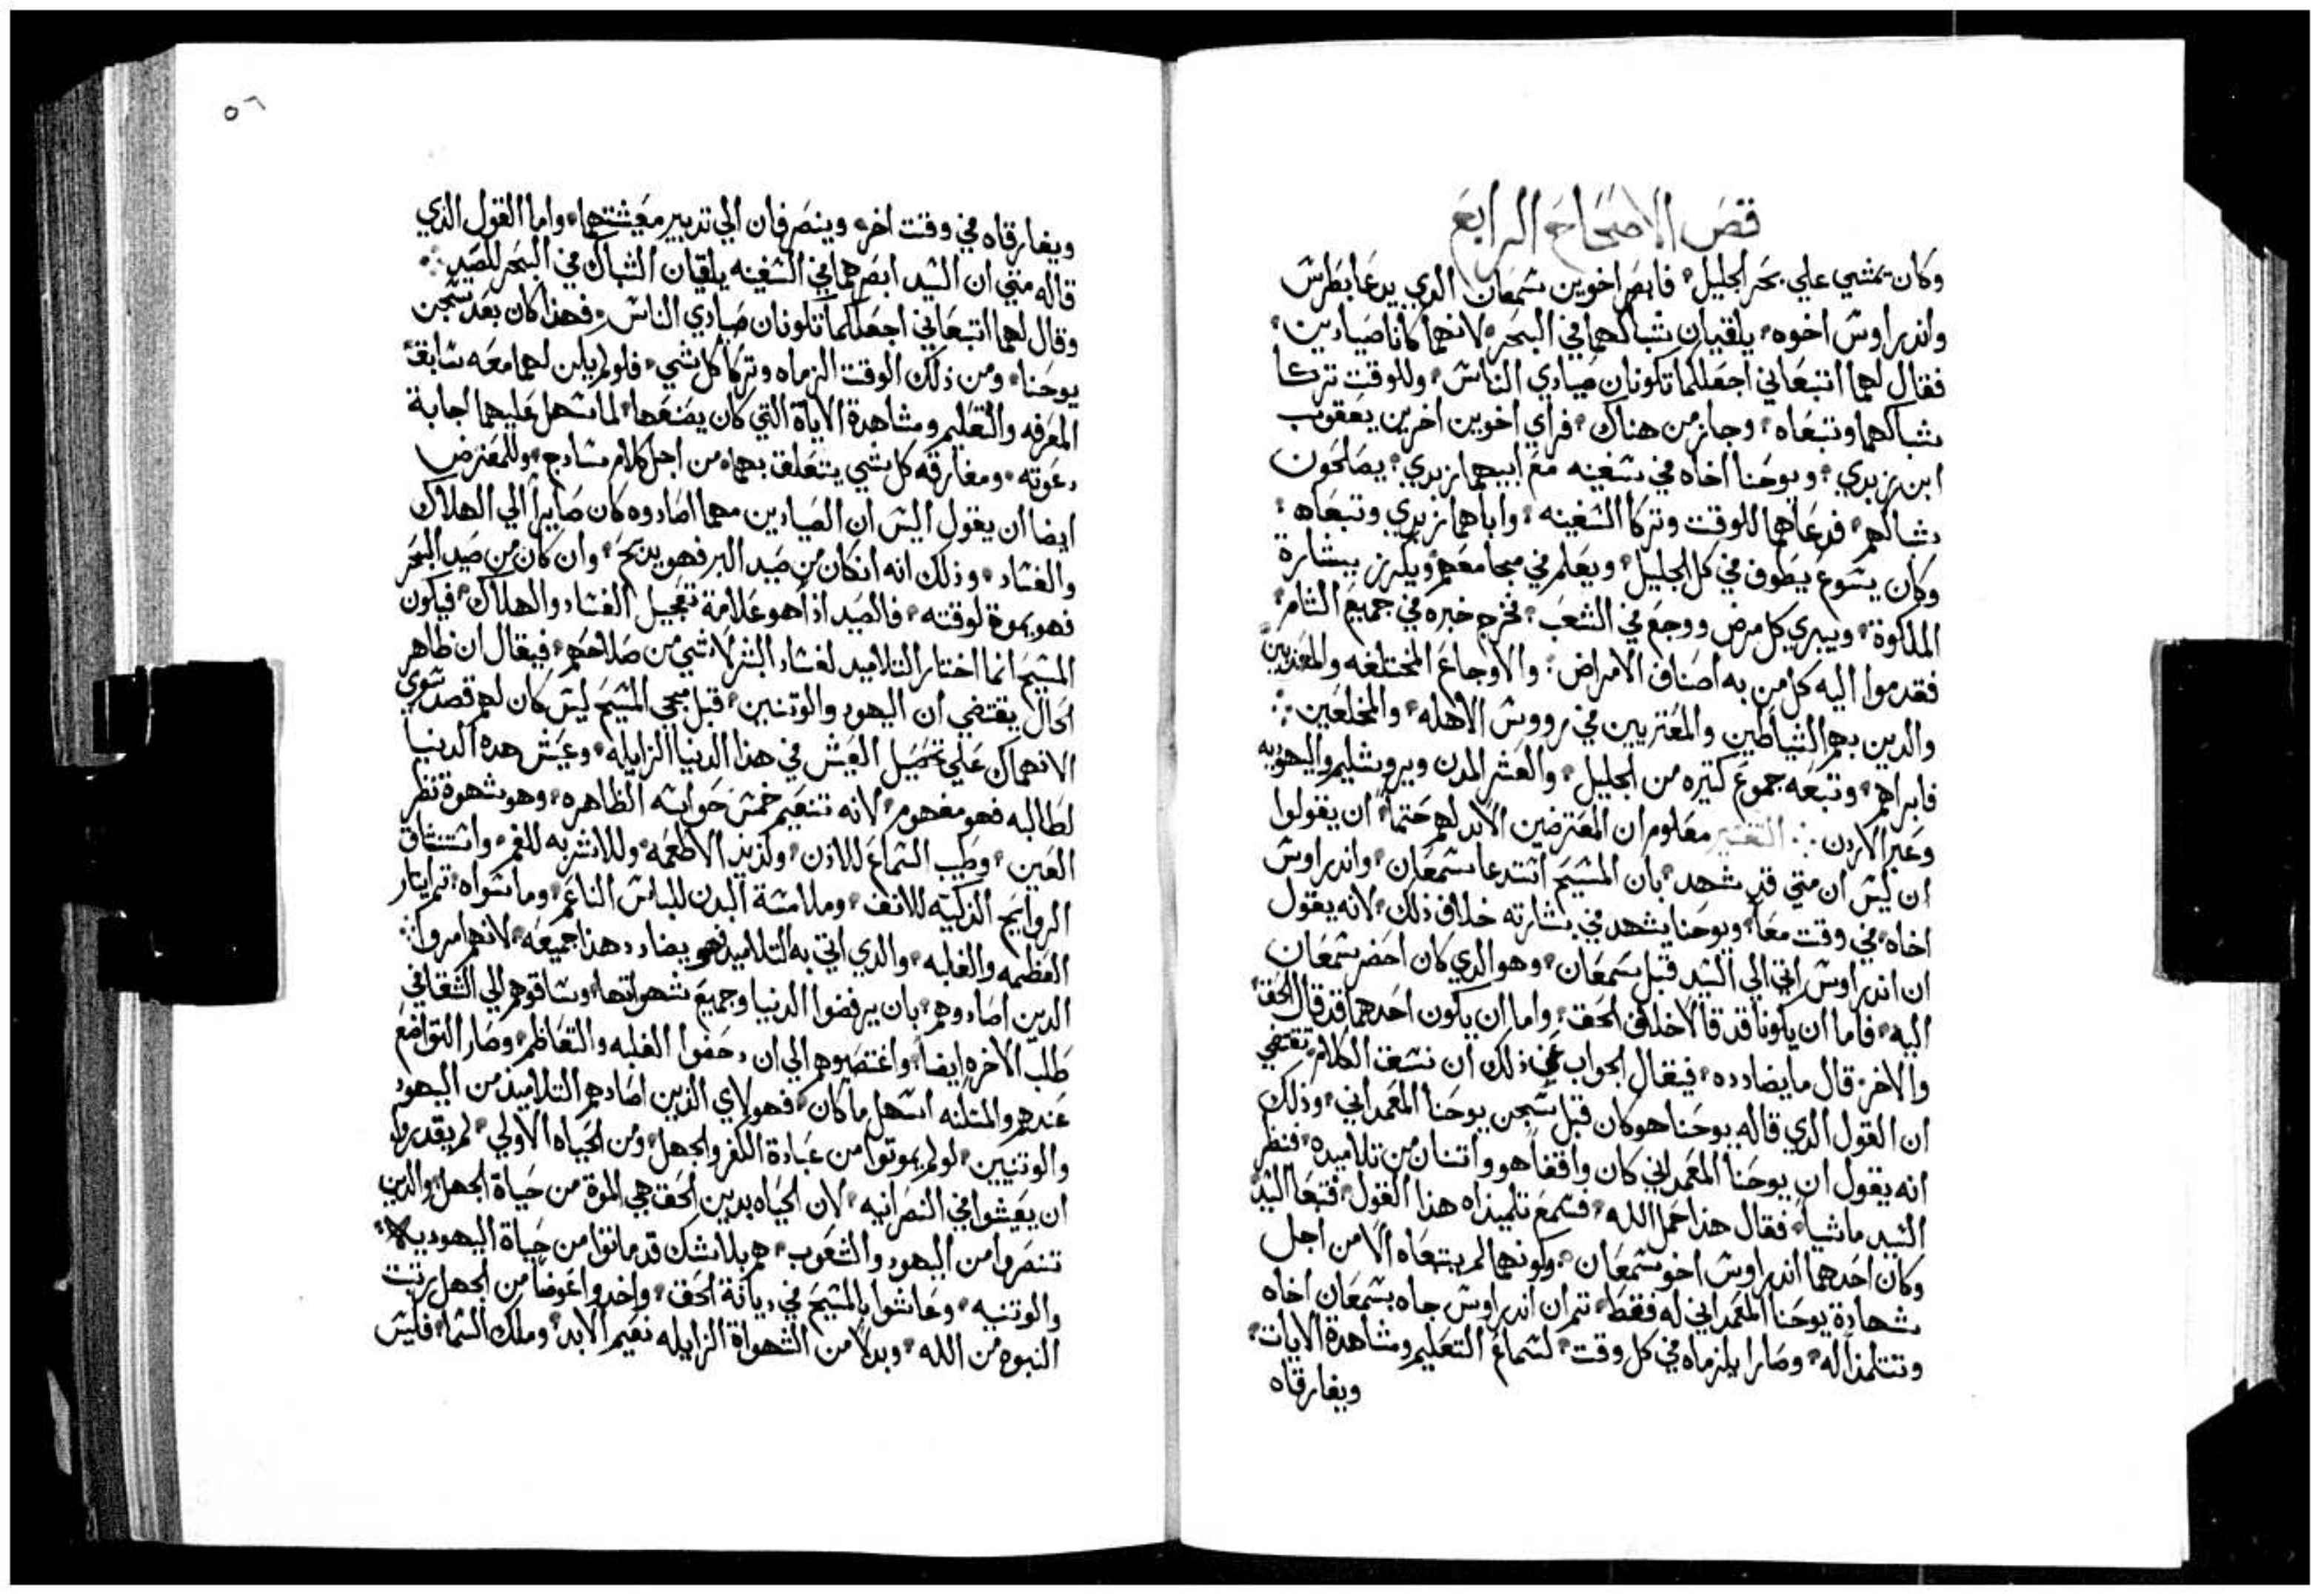 قص الاصحاح الرابع
وكان يمشي علي بحر الجليل فابصر اخوين شمعان الدي يدعا بطرس
واندراوس اخوه يلقيان شباكهما في البحر لانهما كانا صيادين
فقال لهما اتبعاني اجعلكما تكونان صيادي الناس وللوقت تركا
شباكهما وتبعاه وجاز من هناك فراي اخوين اخرين يعقوب
ابن زبدي ويوحنا اخاه في سفينه مع ابيهما زبدي يصلحون
شباكهم فدعاهما للوقت وتركا السفينه واباهما زبدي وتبعاه
وكان يسوع يطوف في كل الجليل ويعلم في مجامعهم ويكرز ببشارة
الملكوة ويبري كل مرض ووجع في الشعب فخرج خبره في جميع الشام
فقدموا اليه كل من به اصناف الامراض والاوجاع المختلفه والمعذبين
والدين بهم الشياطين والمعتريين في رووس الاهله والمخلعين
فابراهم وتبعه جموع كتيره من الجليل والعشر المدن ويروشليم واليهوديه
وعبر الاردن التفسير معلوم ان المعترضين الابد لهم حتماً ان يقولوا
ان ليس ان متي قد شهد بان المسيح استدعا شمعان واندراوس
اخاه في وقت معاً ويوحنا يشهد في بشارته خلاف ذلك لانه يقول
ان اندراوس اتي الي السيد قبل شمعان وهو الدي كان احضر شمعان
اليه فاما ان يكونا قد قالا خلاف الحق واما ان يكون احدهما قد قال الحق
والاخر قال ما يضادده فيقال الجواب عن ذلك ان نسق الكلام تقتضي
ان القول الدي قاله يوحنا هو كان قبل سجن يوحنا المعمداني وذلك
انه يقول ان يوحنا المعمداني كان واقفاً هو واتنان من تلاميده فنظر
السيد ماشياً فقال هدا حمل الله فسمع تلميذاه هذا القول فتبعا السيد
وكان احدهما اندراوس اخو شمعان وكونهما لم يتبعاه الا من اجل
شهادة يوحنا المعمداني له فقط تم ان اندراوس جاه بشمعان اخاه
وتتلمذا له وصارا يلزماه في كل وقت لسماع التعليم ومشاهدة الايات
ويفارقاه
٥٦
ويفارقاه في وقت اخر وينصرفان الي تدبير معيشتهما واما القول الذي
قاله متي ان السيد ابصرهما في السفينه يلقيان الشباك في البحر للصيد
وقال لهما اتبعاني اجعلكما تكونان صيادي الناس فهذا كان بعد سجن
يوحنا ومن ذلك الوقت الزماه وتركا كل شي فلو لم يكن لهما معه سابقة
المعرفه والتعليم ومشاهدة الاياة التي كان يصنعها لما سهل عليهما اجابة
دعوته ومفارقه كل شي يتعلق بهما من اجل كلام سادج وللمعترض
ايضا ان يقول اليس ان الصيادين مهما اصادوه كان صايراً الي الهلاك
والفساد وذلك انه ان كان من صيد البر فهو يدبح وان كان من صيد البحر
فهو يموة لوقته فالصيد اذا هو علامة تعجيل الفساد والهلاك فيكون
المسيح انما اختار التلاميد لفساد البشر لا شي من صلاحهم فيقال ان ظاهر
الحال يقتضي ان اليهود والوتنيين قبل مجي المسيح ليس كان لهم قصد سوي
الانهماك علي تحصيل العيش في هذا الدنيا الزايله وعيش هده الدنيا
لطالبه فهو مفهوم لانه تنعيم خمس حواسه الظاهره وهو شهوة نظر
العين وطيب السماع للادن ولذيذ الاطعمه وللاشربه للفم واستنشاق
الروايح الذكيه للانف وملامسة البدن للباس الناعم وما سواه تم ايتار
العظمه والغلبه والدي اتي به التلاميد فهو يضادد هذا جميعه لانهم امروا
الدين اصادوهم بان يرفضوا الدنيا وجميع شهواتها وساقوهم الي الشقا في
طلب الاخره ايضاً واغتصبوهم الي ان دحضوا الغلبه والتعاظم وصار التواضع
عندهم والمتلنه اسهل ما كان فهولاي الذين اصادهم التلاميذ من اليهود
والوتنيين لو لم يموتوا من عبادة الكفر والجهل ومن الحياه الاولي لم يقدروا
ان يعيشوا في النصرانيه لان الحياه بدين الحق هي الموة من حياة الجهل والدين
تنصروا من اليهود والشعوب هم بلا شك قد ماتوا من حياة اليهوديه
والوتنيه وعاشوا بالمسيح في ديانة الحق واخدوا عوضاً من الجهل رتبت
النبوه من الله وبدلاً من الشهواة الزايله نعيم الابد وملك السما فليس